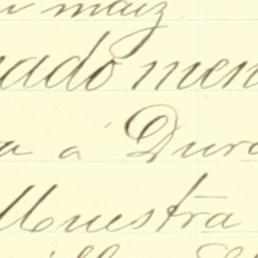 maiz
ado men
a á Dura
Muestra